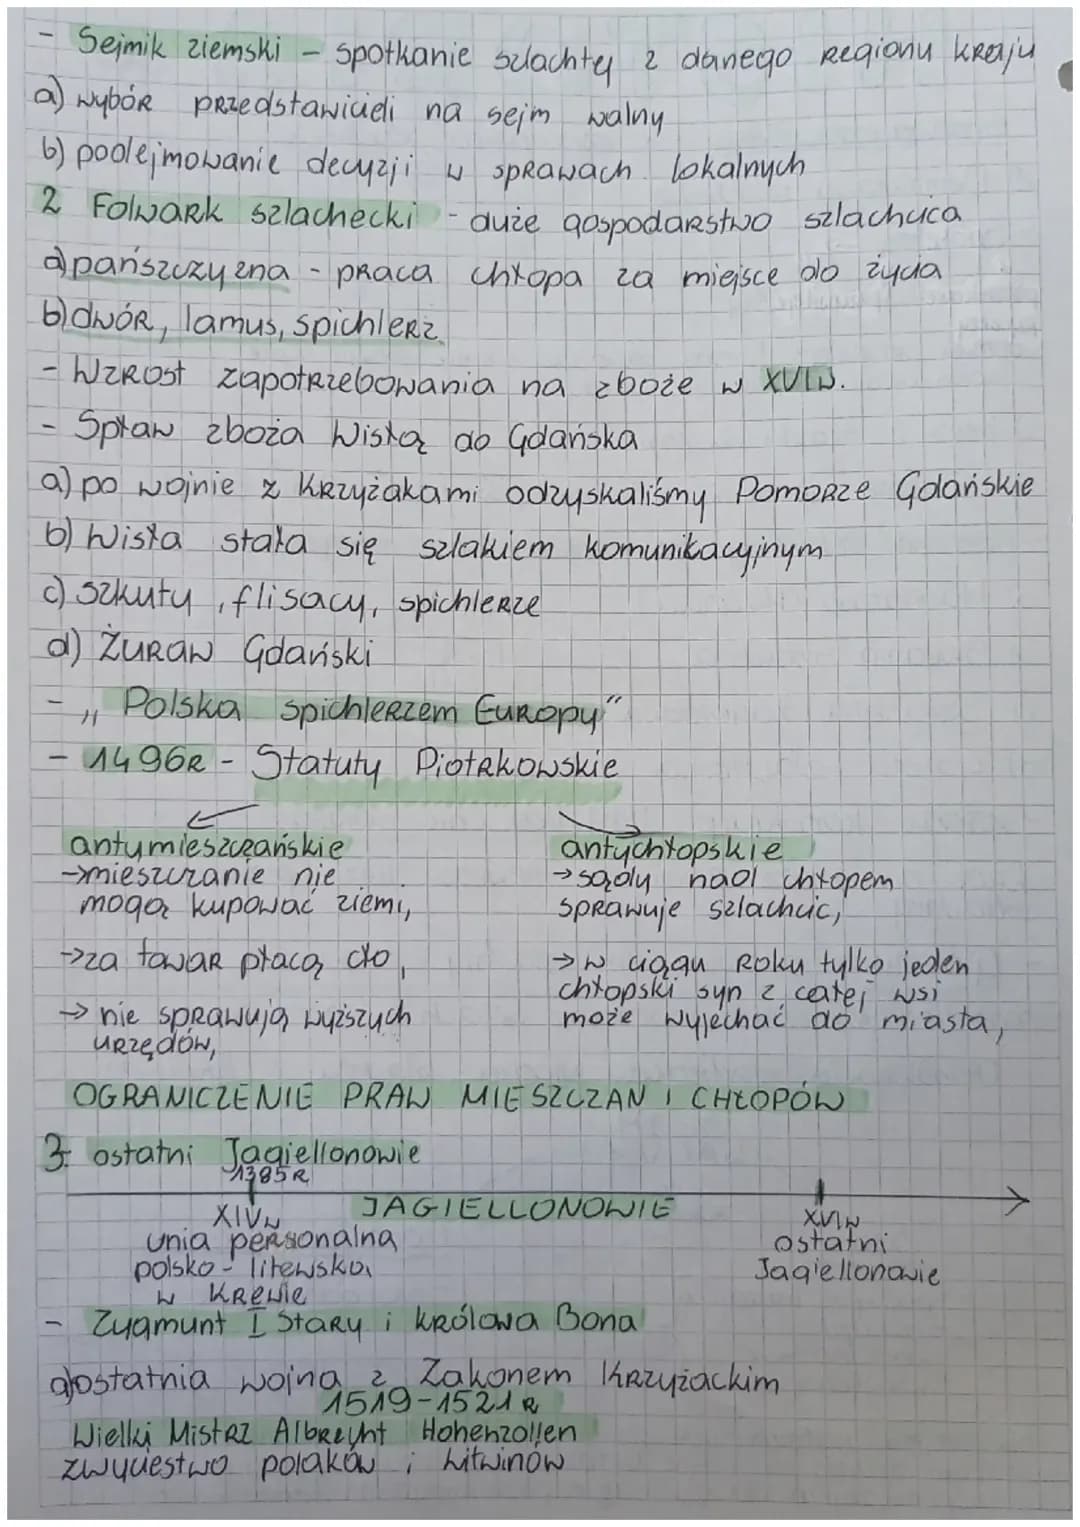 - Sejmik ziemski - spotkanie szlachty z danego regionu kraju
a) wybór przedstawicieli na sejm walny
b) podejmowanie decyzji w sprawach lokalnych
2 Folwark szlachecki - duże gospodarstwo szlachcica
a) pańszczyzna - praca chłopa za miejsce do życia
b) dwór, lamus, spichlerz
- Wzrost zapotrzebowania na zboże w XVI w.
- Spław zboża Wisłą do Gdańska
a) po wojnie z Krzyżakami odzyskaliśmy Pomorze Gdańskie
b) Wisła stała się szlakiem komunikacyjnym
c) szkuty, flisacy, spichlerze
d) Żuraw Gdański
- „Polska spichlerzem Europy”
- 1496r - Statuty Piotrkowskie
antymieszczańskie
→mieszczanie nie
mogą kupować ziemi,
→za towar płacą cło,
→ nie sprawują wyższych
urzędów,
antychłopskie
→sądy nad chłopem
sprawuje szlachcic,
→ w ciągu roku tylko jeden
chłopski syn z całej wsi
może wyjechać do miasta,
OGRANICZENIE PRAW MIESZCZAN I CHŁOPÓW
3. ostatni Jagiellonowie
1385r
JAGIELLONOWIE
XIVw
unia personalna
polsko-litewska
w Krewie
XVIw
ostatni
Jagiellonowie
- Zygmunt I Stary i królowa Bona
a) ostatnia wojna z Zakonem Krzyżackim
1519-1521r
Wielki Mistrz Albrecht Hohenzollen
zwycięstwo polaków i Litwinów